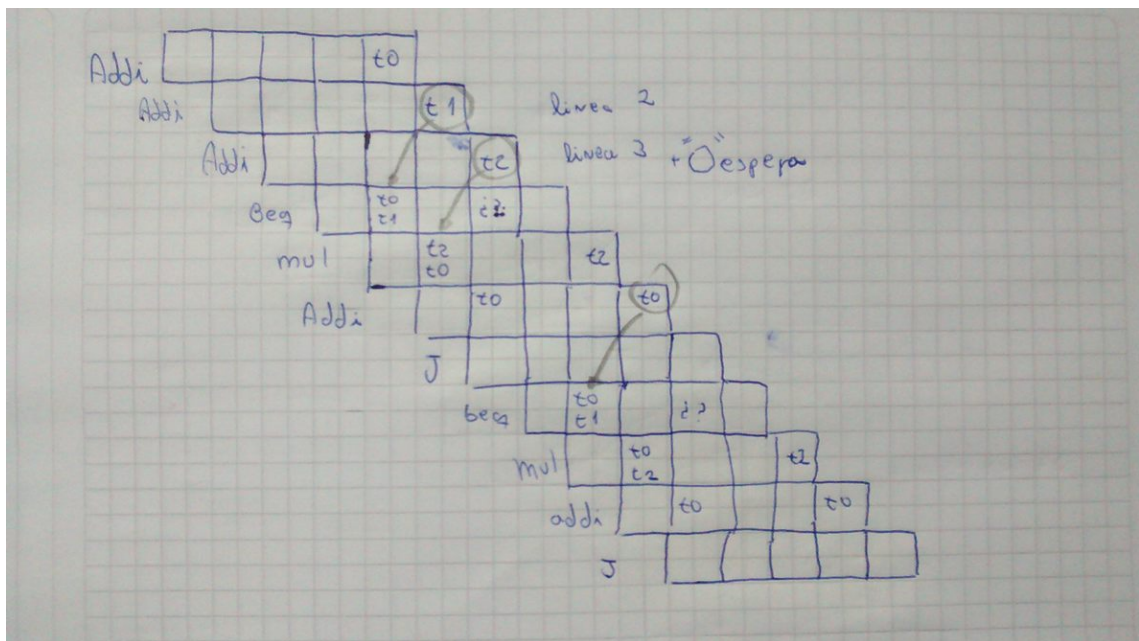 Addi t0
Addi t1 linea 2
Addi t2 linea 3 + "0" espera
Beq t0 t1 ¿?
mul t2 t0 t2
Addi t0 t0
J
beq t0 t1 ¿?
Mul t0 t2 t2
addi t0 t0
J